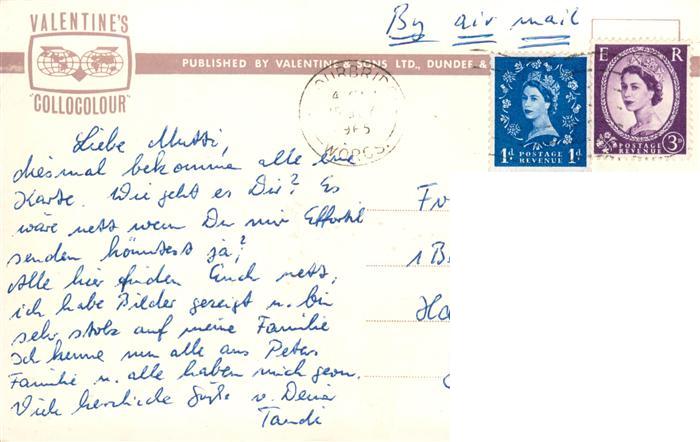 VALENTINE'S
"COLLOCOLOUR"
PUBLISHED BY VALENTINE & SONS LTD., DUNDEE &
By air mail
OURBRID
1965
WORCS.
1d. POSTAGE REVENUE 1d.
E R
POSTAGE REVENUE 3D
Liebe Mutti,
diesmal bekommen alle eine
Karte. Wie geht es Dir? Es
wäre nett wenn Du mir Effortil
senden könntest ja?
Alle hier finden Euch nett,
ich habe Bilder gezeigt u. bin
sehr stolz auf meine Familie
Ich kenne nun alle aus Peters
Familie u. alle haben mich gern.
Viele herzliche Grüße v. Deiner
Tandi
Fr
1 B
Ha